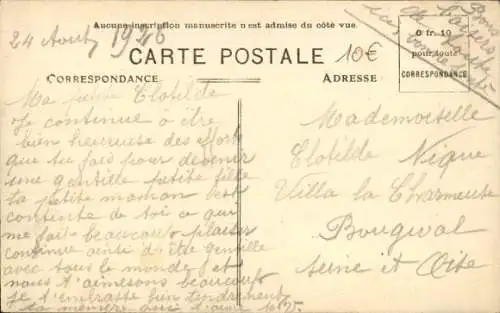 Aucune inscription manuscrite n'est admise du côté vue.
24 Aout 1926
CARTE POSTALE
10€
0 fr. 10
pour toute
CORRESPONDANCE
Bons
baisers
CORRESPONDANCE
ADRESSE
Ma petite Clotilde
Je continue a être
bien heureuse des efforts
que tu fais pour devenir
une gentille petite fille
ta petite maman est
contente de toi ce qui
me fait beaucoup plaisir
continue ainsi d être gentille
avec tous le monde et
nous t'aimerons beaucoup
je t'embrasse bien tendrement
ta qui t'aime
Mademoiselle
Clotilde Nique
Villa la Charmeuse
Bougival
Seine et Oise